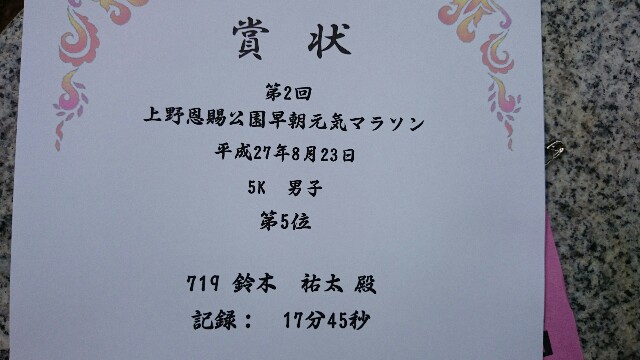 賞 状
第2回
上野恩賜公園早朝元気マラソン
平成27年8月23日
5K 男子
第5位
719 鈴木 祐太 殿
記録： 17分45秒